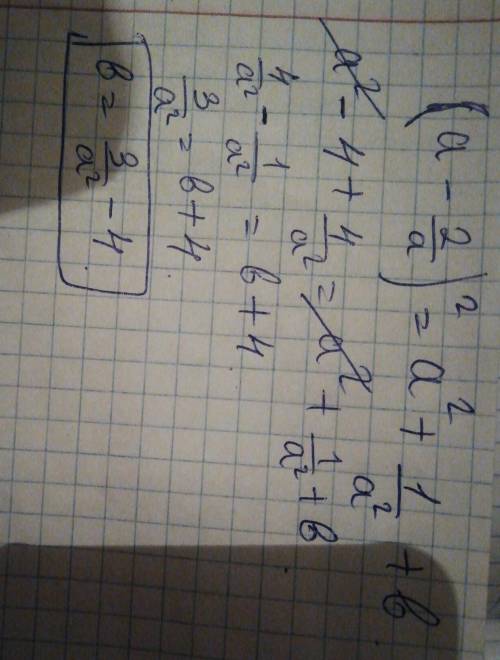 (a - 2/a)² = a² + 1/a² + b
a² - 4 + 4/a² = a² + 1/a² + b
4/a² - 1/a² = b + 4
3/a² = b + 4
b = 3/a² - 4